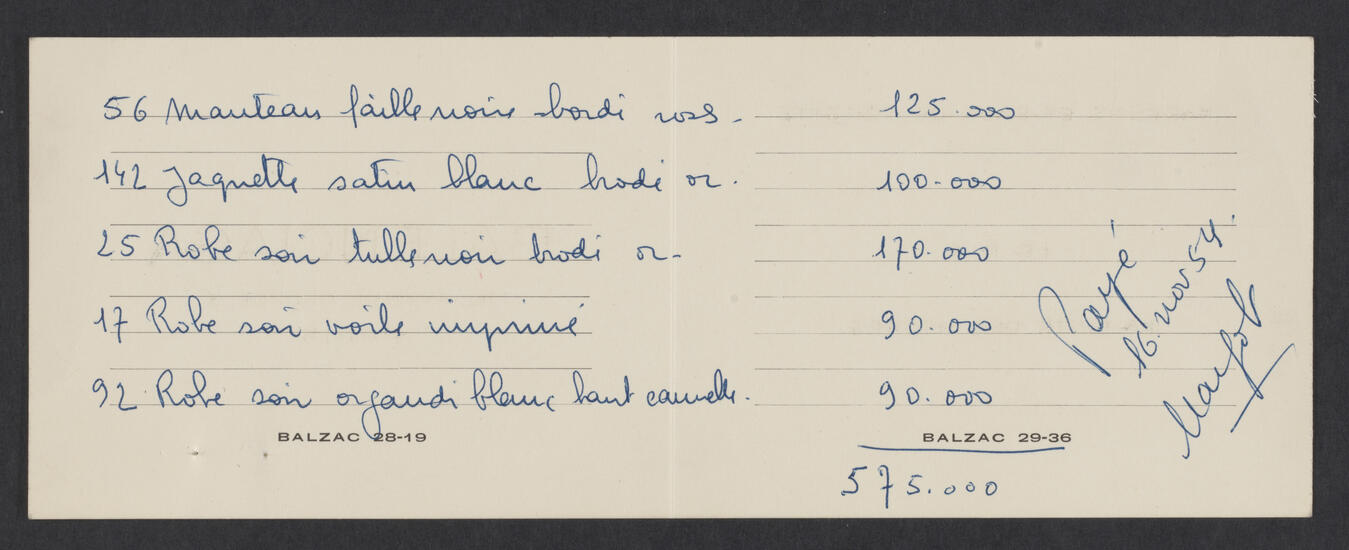 56 Manteau faille noire bordé rose - 125.000
142 Jaquette satin blanc brodé or. 100-000
25 Robe soir tulle noir brodé or- 170.000
17 Robe soir voile imprimé 90.000
92 Robe soir organdi blanc haut cannelle. 90.000
BALZAC 28-19 BALZAC 29-36
575.000
Payé
16 nov 54